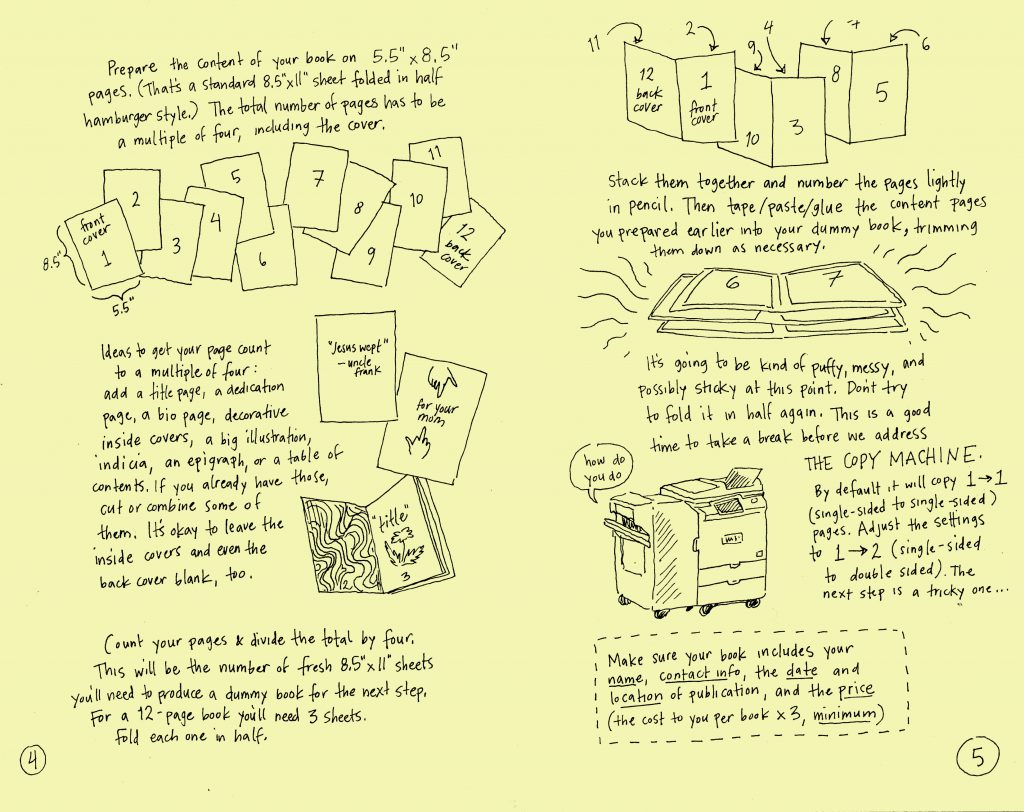 Prepare the content of your book on 5.5" x 8.5"
pages. (That's a standard 8.5"x11" sheet folded in half
hamburger style.) The total number of pages has to be
a multiple of four, including the cover.
front
cover
1
2
3
4
5
6
7
8
9
10
11
12
back
cover
8.5"
5.5"
Ideas to get your page count
to a multiple of four:
add a title page, a dedication
page, a bio page, decorative
inside covers, a big illustration,
indicia, an epigraph, or a table of
contents. If you already have those,
cut or combine some of
them. It's okay to leave the
inside covers and even the
back cover blank, too.
"Jesus wept"
- uncle
frank
for your
mom
"title"
3
Count your pages & divide the total by four.
This will be the number of fresh 8.5"x11" sheets
you'll need to produce a dummy book for the next step.
For a 12-page book you'll need 3 sheets.
Fold each one in half.
4
11
12
back
cover
2
1
front
cover
9
4
10
3
7
8
6
5
Stack them together and number the pages lightly
in pencil. Then tape/paste/glue the content pages
you prepared earlier into your dummy book, trimming
them down as necessary.
6
7
It's going to be kind of puffy, messy, and
possibly sticky at this point. Don't try
to fold it in half again. This is a good
time to take a break before we address
THE COPY MACHINE.
how do
you do
By default it will copy 1→1
(single-sided to single-sided)
pages. Adjust the settings
to 1→2 (single-sided
to double sided). The
next step is a tricky one...
Make sure your book includes your
name, contact info, the date and
location of publication, and the price
(the cost to you per book x 3, minimum)
5